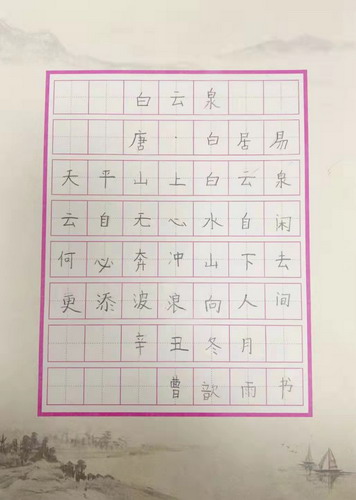 白云泉
唐·白居易
天平山上白云泉
云自无心水自闲
何必奔冲山下去
更添波浪向人间
辛丑冬月
曹歆雨书